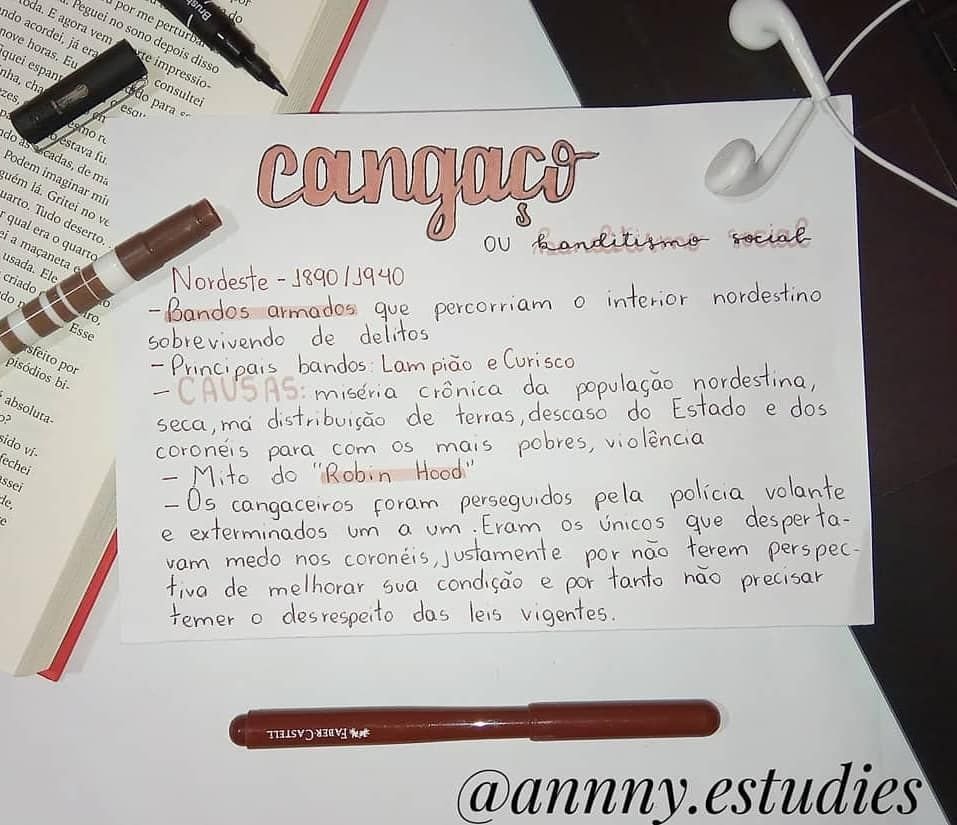 cangaço
OU banditismo social
Nordeste - 1890/1940
- Bandos armados que percorriam o interior nordestino
sobrevivendo de delitos
- Principais bandos: Lampião e Curisco
- CAUSAS: miséria crônica da população nordestina,
seca, má distribuição de terras, descaso do Estado e dos
coronéis para com os mais pobres, violência
- Mito do "Robin Hood"
- Os cangaceiros foram perseguidos pela polícia volante
e exterminados um a um. Eram os únicos que desperta-
vam medo nos coronéis, justamente por não terem perspec-
tiva de melhorar sua condição e por tanto não precisar
temer o desrespeito das leis vigentes.
FABER-CASTELL
@annny.estudies
por me perturba
toda. E agora vem
Peguei no sono depois disso
ndo acordei, já era
nove horas. Eu
impressio-
consultei
do para
estava
Podem imaginar
guém lá. Gritei no
uarto. Tudo deserto.
r qual era o quarto
ei a maçaneta
usada. Ele
criado
Esse
sfeito por
pisódios bi-
absoluta-
o?
sido
fechei
assei
de,